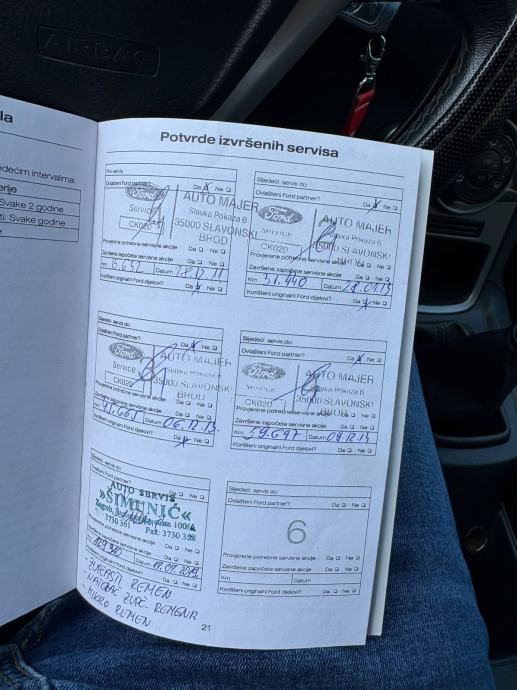 AIRBAG
la
edećim intervalima:
Svake 2 godine
ti: Svake godine
Potvrde izvršenih servisa
Prvi servis
Ovlašteni Ford partner? Da Ne
Ford
Service
CK020
AUTO MAJER
Slavka Pokaza 6
35000 SLAVONSKI
BROD
Provjerene potrebne servisne akcije Da Ne
Završene započete servisne akcije
Km Datum
Korišteni originalni Ford dijelovi? Da Ne
Sljedeći servis do:
Ovlašteni Ford partner? Da Ne
Ford
Service
CK020
AUTO MAJER
Slavka Pokaza 6
35000 SLAVONSKI
BROD
Provjerene potrebne servisne akcije Da Ne
Završene započete servisne akcije
Km 31.440 Datum
Korišteni originalni Ford dijelovi? Da Ne
Sljedeći servis do:
Ovlašteni Ford partner? Da Ne
Ford
Service
CK020
AUTO MAJER
Slavka Pokaza 6
35000 SLAVONSKI
BROD
Provjerene potrebne servisne akcije Da Ne
Završene započete servisne akcije
Km Datum 06.12.13.
Korišteni originalni Ford dijelovi? Da Ne
Sljedeći servis do:
Ovlašteni Ford partner? Da Ne
Ford
Service
CK020
AUTO MAJER
Slavka Pokaza 6
35000 SLAVONSKI
BROD
Provjerene potrebne servisne akcije Da Ne
Završene započete servisne akcije
Km 59.697 Datum
Korišteni originalni Ford dijelovi? Da Ne
Sljedeći servis do:
Ovlašteni Ford partner?
AUTO SERVIS
»ŠIMUNIĆ«
Zagreb, 100/A
3730 361 Fax: 3730 358
Da Ne
Završene započete servisne akcije
Km Datum
Korišteni originalni Ford dijelovi? Da Ne
- ZUPČASTI REMEN
- NATEZAČ ZUPČ. REMENA
- MIKRO REMEN
Sljedeći servis do:
Ovlašteni Ford partner? Da Ne
6
Provjerene potrebne servisne akcije Da Ne
Završene započete servisne akcije
Km Datum
Korišteni originalni Ford dijelovi? Da Ne
21